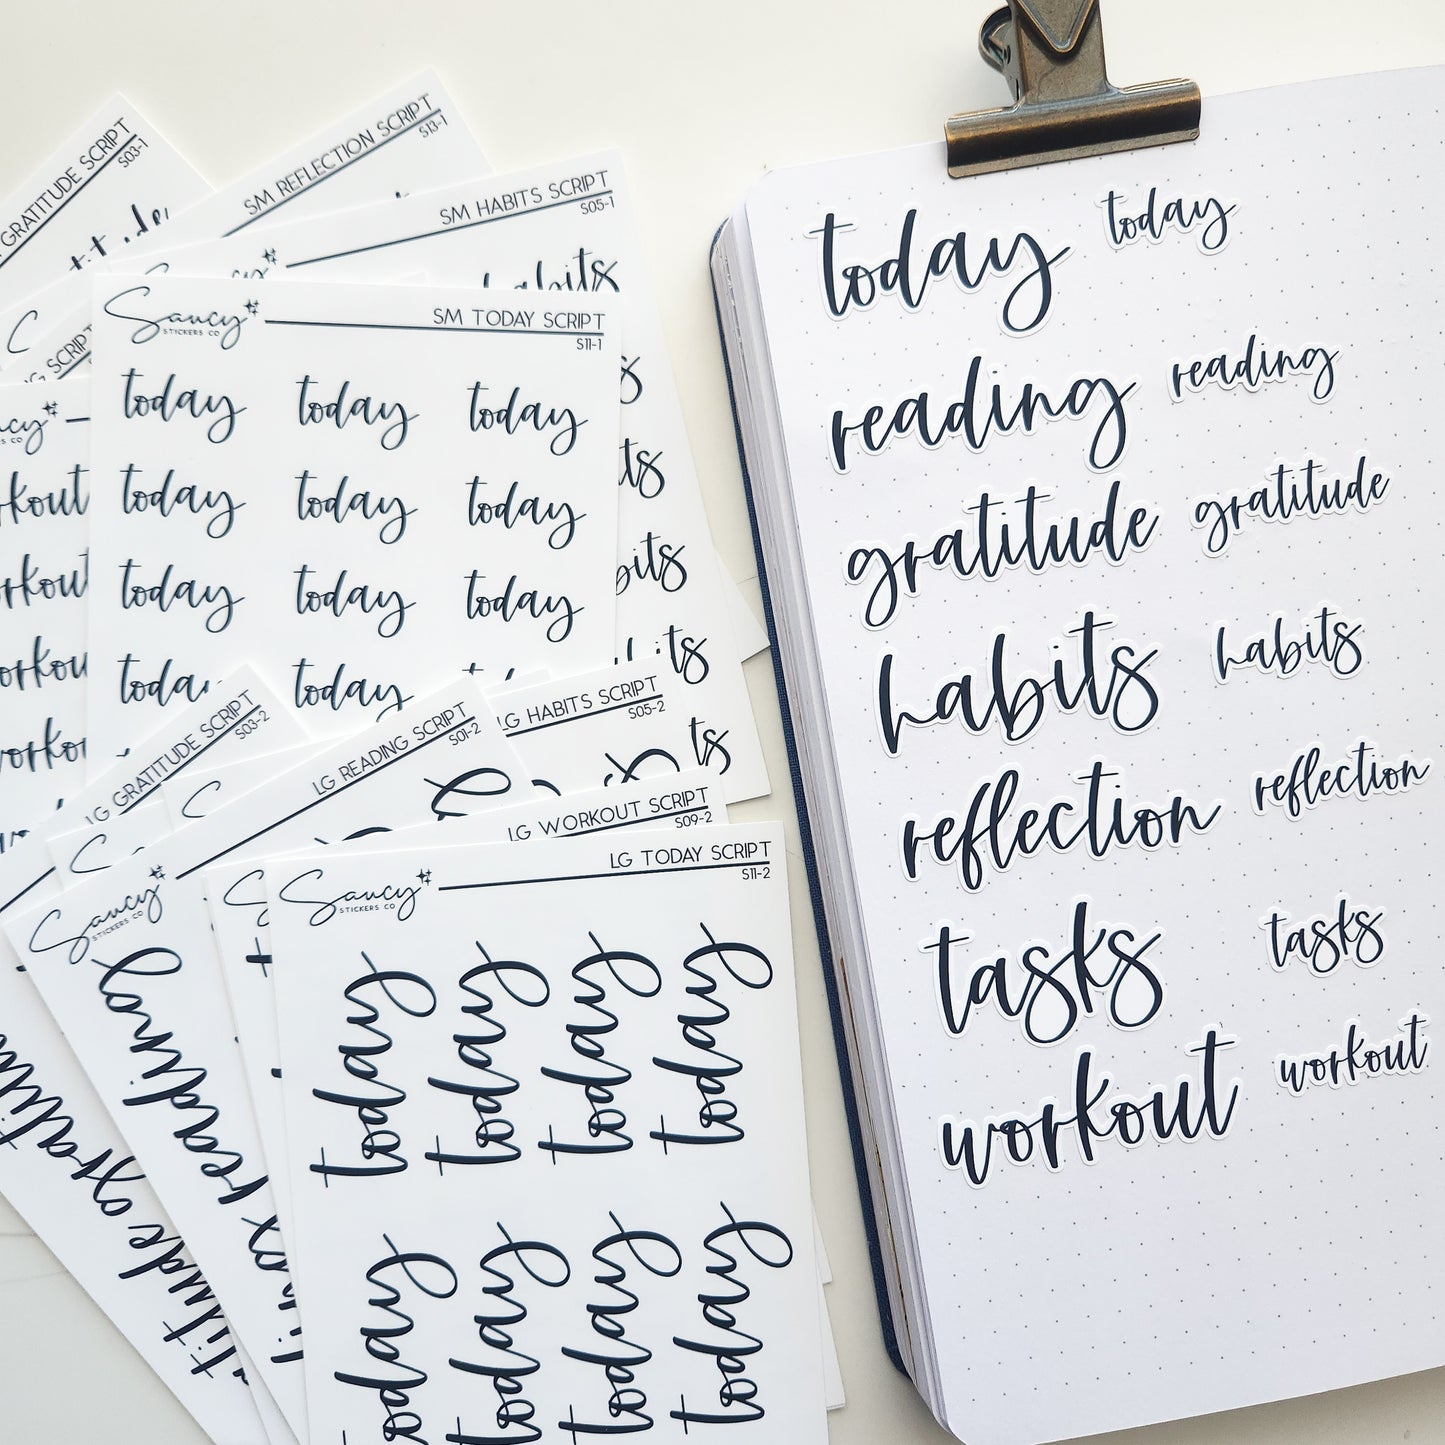 GRATITUDE SCRIPT
S03-1
SM REFLECTION SCRIPT
S13-1
SM HABITS SCRIPT
S05-1
habits
Saucy
STICKERS CO
SM TODAY SCRIPT
S11-1
today today today
today today today
today today today
today today
workout
workout
workout
workout
habits
habits
LG GRATITUDE SCRIPT
S03-2
LG READING SCRIPT
S01-2
LG HABITS SCRIPT
S05-2
LG WORKOUT SCRIPT
S09-2
Saucy
STICKERS CO
reading
gratitude
Saucy
STICKERS CO
LG TODAY SCRIPT
S11-2
today today today today
today today today today
today today
reading reading
gratitude gratitude
habits habits
reflection reflection
tasks tasks
workout workout